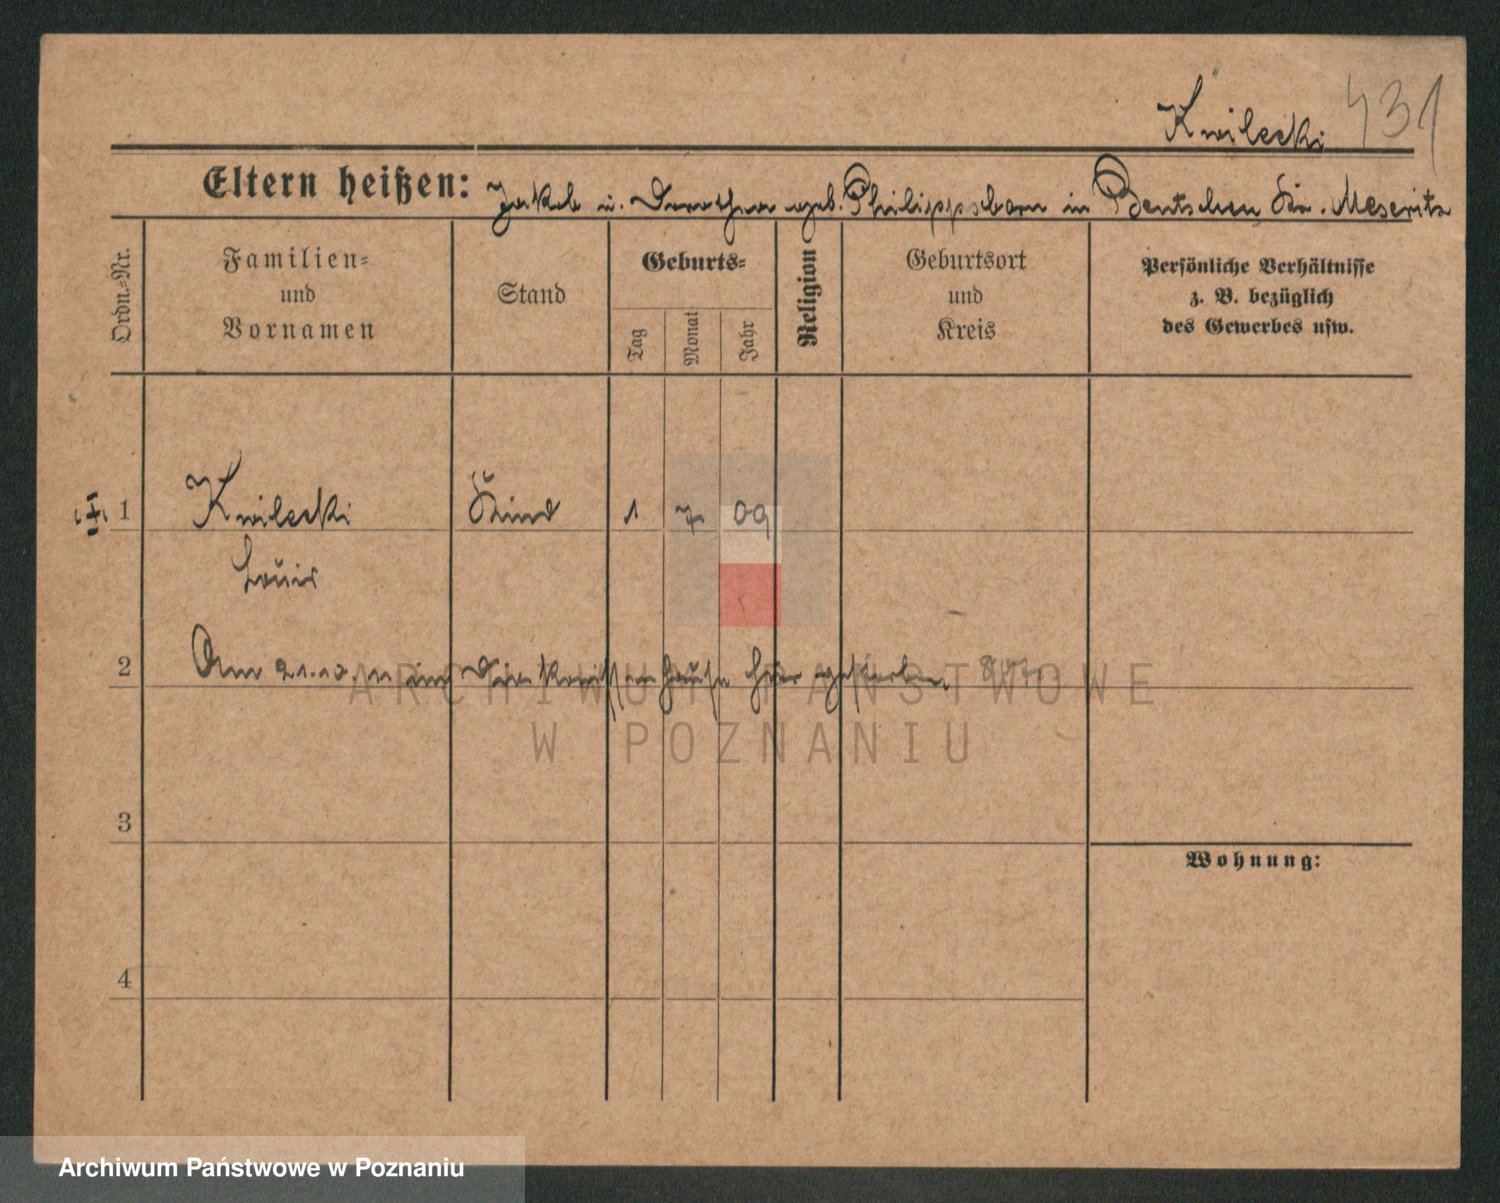 Kwilecki 431
Eltern heißen: Jakob u. Dorothea geb. Philippsborn in Bentschen Kr. Meseritz
Ordn.-Nr.
Familien-
und
Vornamen
Stand
Geburts-
Tag
Monat
Jahr
Religion
Geburtsort
und
Kreis
Persönliche Verhältnisse
z. B. bezüglich
des Gewerbes usw.
1 Kwilecki Kind 1 7 09
Louis
2 Am 21.10.11 im Diakonissenhause hier gestorben.
ARCHIWUM PAŃSTWOWE
W POZNANIU
3
Wohnung:
4
Archiwum Państwowe w Poznaniu